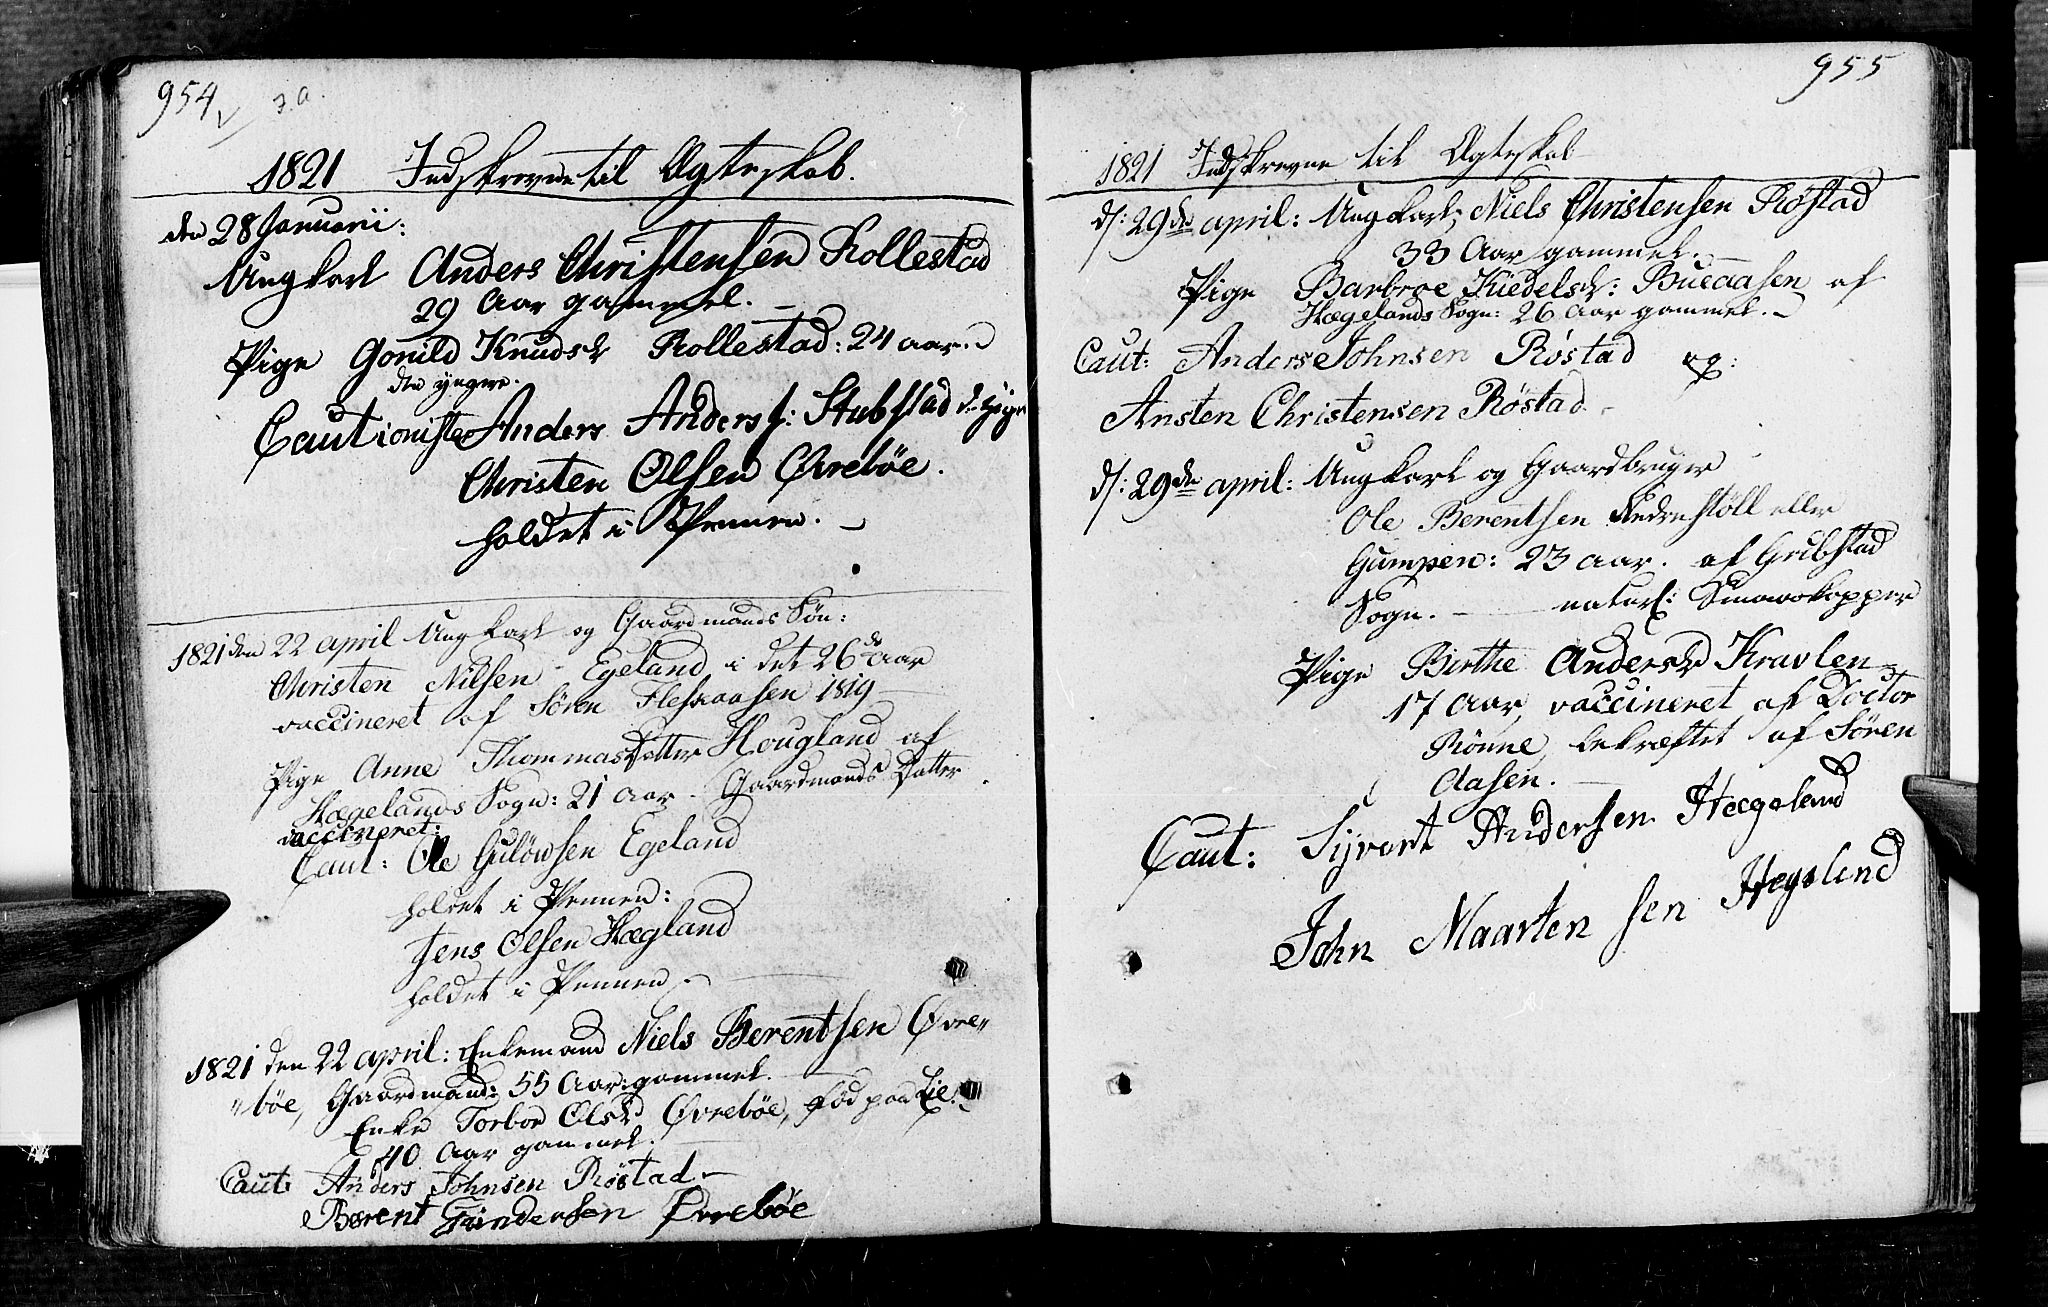 954
7.a.
1821 Indskrevne til Ægteskab.
den 28 Januarii:
Ungkarl Anders Christensen Rollestad
29 Aar gammel. —
Pige Gonild Knudsdr Rollestad: 24 aar.
den yngre.
Cautionister Anders Anders f: Stubstad
Christen Olsen Øvrebøe.
holdet i Pennen. —
1821 den 22 april Ungkarl og Gaardmands Søn:
Christen Nilsen Egeland i det 26de Aar
vaccineret af Søren Flesaaasen 1819
Pige Anne Thommasdatter Hougland af
Hægelands Sogn: 21 Aar. Gaardmands Datter
vaccineret:
Caut: Ole Gulöwsen Egeland
holdet i Pennen:
Jens Olsen Hægland
holdet i Pennen
1821 den 22 april: Enkemand Niels Berentsen Øvre„
„bøe, Gaardmand: 55 Aar gammel.
Enke Torbor Olsdr Øvrebøe, fød paa Lie.
40 Aar gammel.
Caut: Anders Johnsen Röstad —
Berent Gundersen Øvrebøe
955
1821 Indskrevne til Ægteskab
d: 29de april: Ungkarl, Niels Christensen Röstad
33 Aar gammel.
Pige Barbroe Kiedelsdr: Bueaasen af
Hægelands Sogn: 26 Aar gammel. —
Caut: Anders Johnsen Röstad og:
Ansten Christensen Röstad. -
d: 29de april: Ungkarl og Gaardbruger
Ole Berentsen eller
Gumpen: 23 aar. af Gribstad
Sogn. — naturl: Smaaekopper
Pige Birthe Andersdr Kravlen
17 Aar, vaccineret af Doctor
Rönne, bekræftet af Sören
Aasen.
Caut: Sijvort Andersen Hægeland
John Maarten sen Hegeland